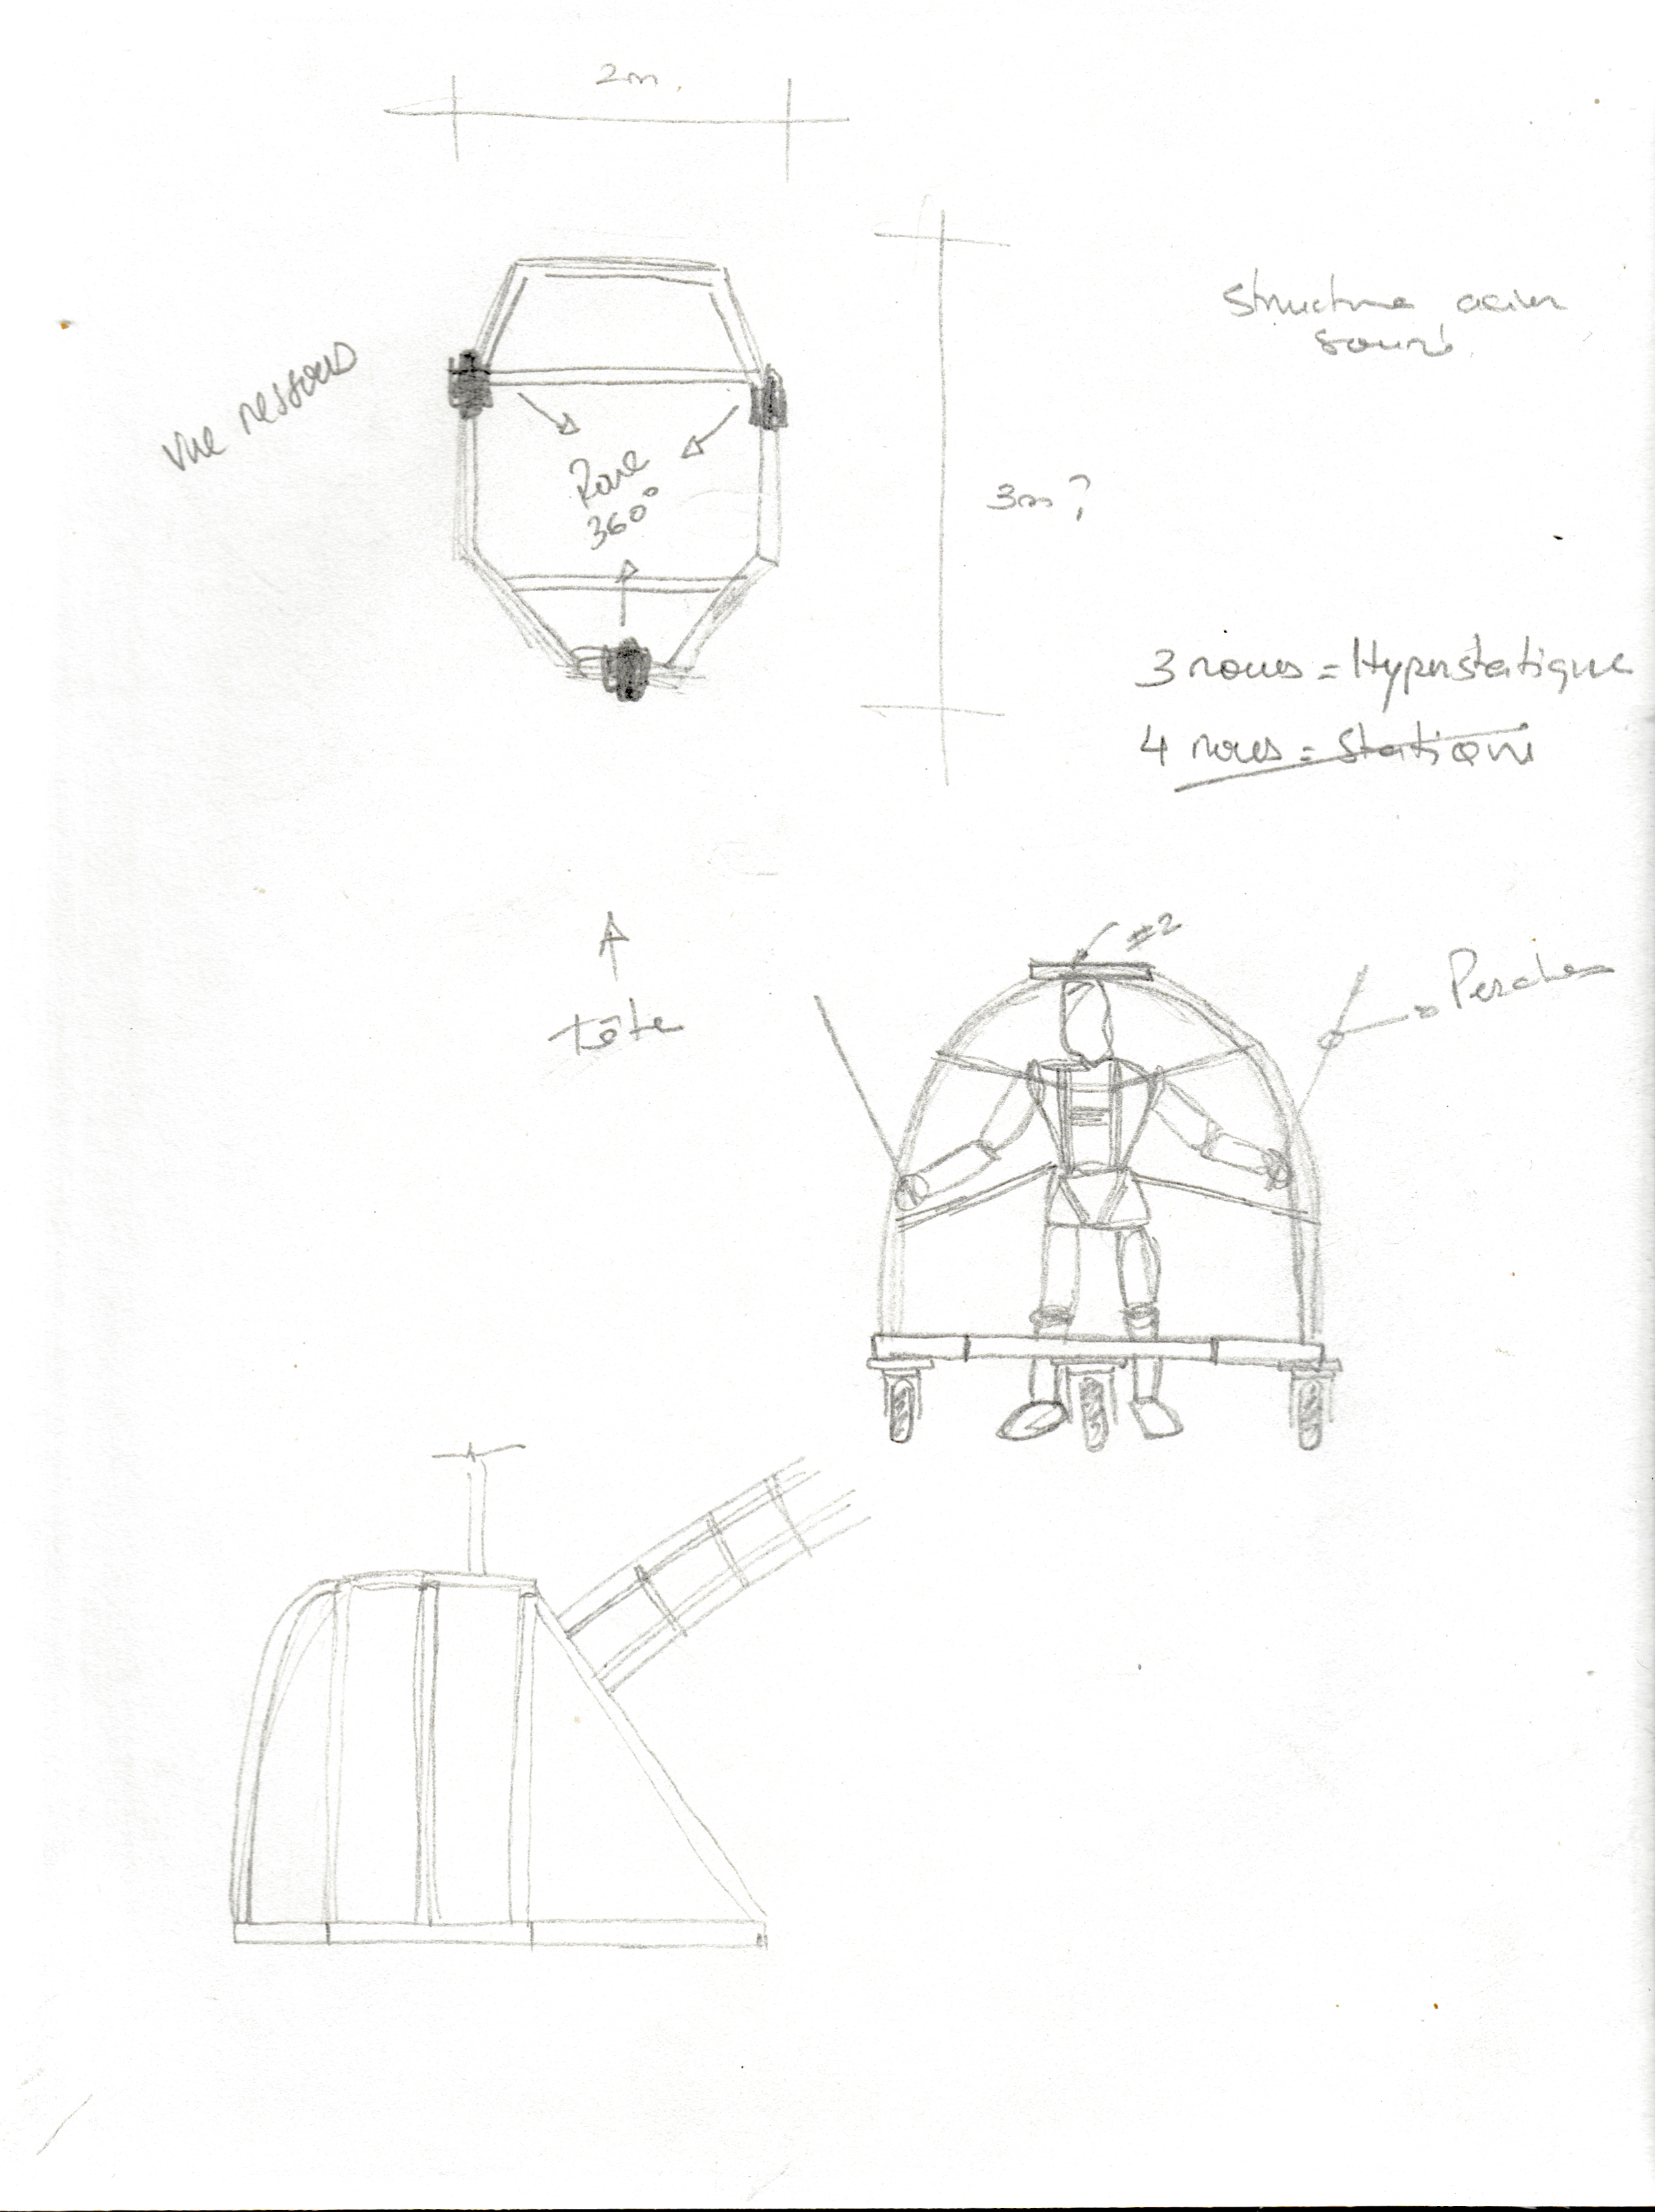 2m
Structure acier
souris
Vue dessous
Roue
360°
3m ?
3 roues = Hyperstatique
4 roues = Statique
#2
Perche
tête